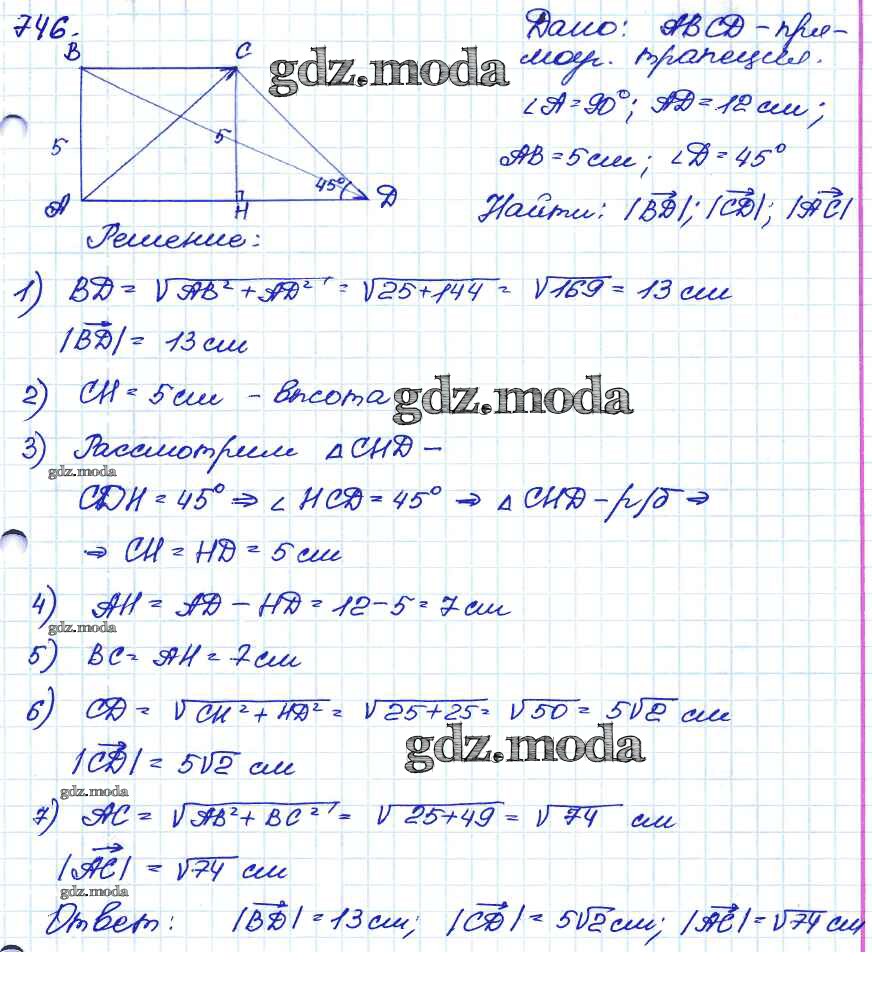 746.
B C
5 5
A H 45° D
gdz.moda
Дано: ABCD – пря-
моуг. трапеция.
∠A = 90°; AD = 12 см;
AB = 5 см; ∠D = 45°
Найти: |BD|; |CD|; |AC|
Решение:
1) BD = √AB² + AD² = √25+144 = √169 = 13 см
|BD| = 13 см
2) CH = 5 см – высота
gdz.moda
3) Рассмотрим △CHD –
gdz.moda
CDH = 45° ⇒ ∠HCD = 45° ⇒ △CHD – р/б ⇒
⇒ CH = HD = 5 см
4) AH = AD – HD = 12 – 5 = 7 см
gdz.moda
5) BC = AH = 7 см
6) CD = √CH² + HD² = √25+25 = √50 = 5√2 см
gdz.moda
|CD| = 5√2 см
gdz.moda
7) AC = √AB² + BC² = √25+49 = √74 см
|AC| = √74 см
gdz.moda
Ответ: |BD| = 13 см; |CD| = 5√2 см; |AC| = √74 см